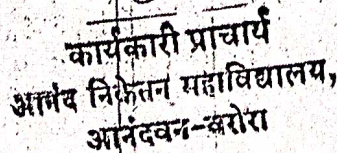 कार्यकारी प्राचार्य
आनंद निकेतन महाविद्यालय,
आनंदवन-वरोरा